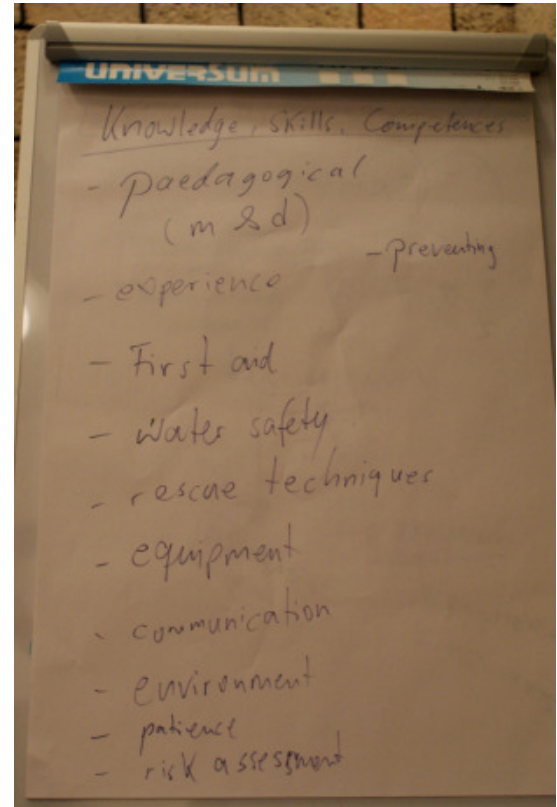 UNIVERSUM
Knowledge, Skills, Competences
- paedagogical
(m & d)
- preventing
- experience
- First aid
- Water safety
- rescue techniques
- equipment
- communication
- environment
- patience
- risk assessment